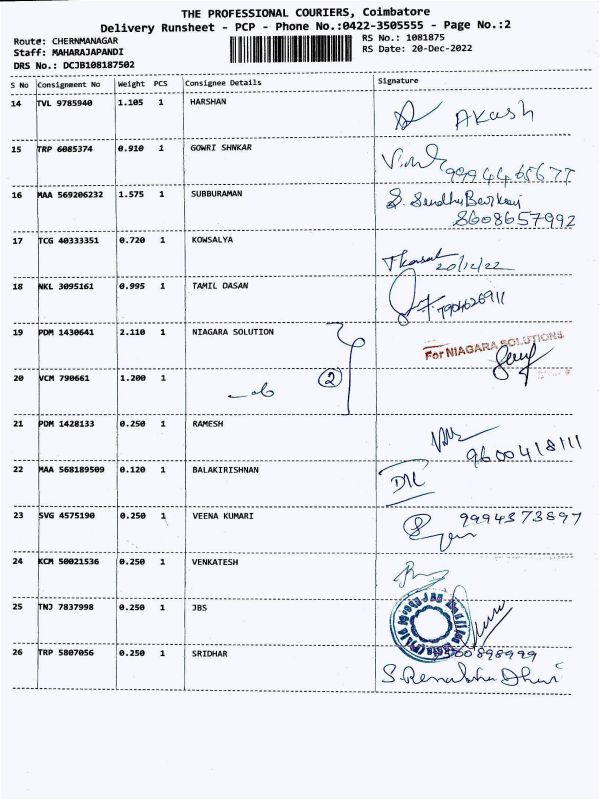 THE PROFESSIONAL COURIERS, Coimbatore
Delivery Runsheet - PCP - Phone No.:0422-3505555 - Page No.:2
Route: CHERNMANAGAR RS No.: 1081875
Staff: MAHARAJAPANDI RS Date: 20-Dec-2022
DRS No.: DCJB108187502
S No Consignment No Weight PCS Consignee Details Signature
14 TVL 9785940 1.105 1 HARSHAN Akash
15 TRP 6085374 0.910 1 GOWRI SHNKAR
9994465677
16 MAA 569206232 1.575 1 SUBBURAMAN
8608657992
17 TCG 40333351 0.720 1 KOWSALYA
20/12/22
18 NKL 3095161 0.995 1 TAMIL DASAN
19 PDM 1430641 2.110 1 NIAGARA SOLUTION For NIAGARA SOLUTIONS
20 VCM 790661 1.200 1 2
21 PDM 1428133 0.250 1 RAMESH
9600418111
22 MAA 568189509 0.120 1 BALAKIRISHNAN
23 SVG 4575190 0.250 1 VEENA KUMARI 9994373897
24 KCM 50021536 0.250 1 VENKATESH
25 TNJ 7837998 0.250 1 JBS
26 TRP 5807056 0.250 1 SRIDHAR